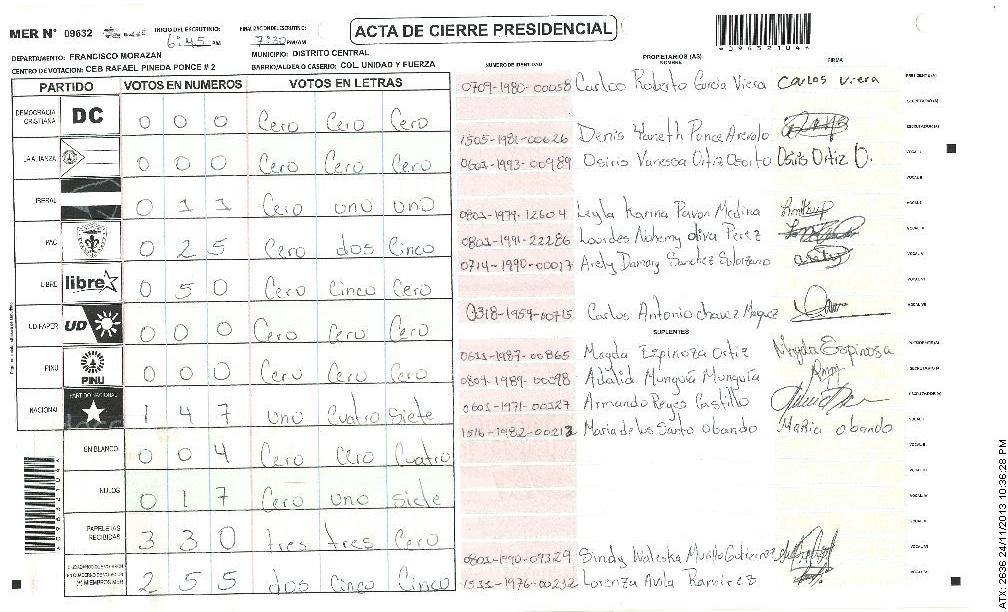 MER N° 09632
INICIO DEL ESCRUTINIO: 6:45 PM
FINALIZACION DEL ESCRUTINIO: 7:30 PM/AM
ACTA DE CIERRE PRESIDENCIAL
DEPARTAMENTO: FRANCISCO MORAZAN
MUNICIPIO: DISTRITO CENTRAL
CENTRO DE VOTACION: CEB RAFAEL PINEDA PONCE # 2
BARRIO/ALDEA O CASERIO: COL. UNIDAD Y FUERZA
PARTIDO VOTOS EN NUMEROS VOTOS EN LETRAS
DEMOCRACIA CRISTIANA DC 0 0 0 Cero Cero Cero
LA ALIANZA 0 0 0 Cero Cero Cero
LIBERAL 0 1 1 Cero uno uno
PAC 0 2 5 Cero dos Cinco
LIBRE libre 0 5 0 Cero Cinco Cero
UD/FAPER UD 0 0 0 Cero Cero Cero
PINU PINU 0 0 0 Cero Cero Cero
NACIONAL PARTIDO NACIONAL 1 4 7 uno Cuatro siete
EN BLANCO 0 0 4 Cero Cero Cuatro
NULOS 0 1 7 Cero uno siete
PAPELETAS RECIBIDAS 3 3 0 tres tres Cero
2 5 5 dos Cinco Cinco
NUMERO DE IDENTIDAD PROPIETARIOS (AS) NOMBRE FIRMA
0709-1980-00058 Carlos Roberto Garcia Viera Carlos Viera PRESIDENTE (A)
SECRETARIO (A)
1505-1981-00626 Denis Yaneth Ponce Arevalo ESCRUTADOR (A)
0601-1993-00989 Osiris Vanessa Ortiz Osorto Osiris Ortiz O. VOCAL I
VOCAL II
0801-1979-12604 Leyla Karina Pavon Medina VOCAL III
0801-1991-22286 Lourdes oliva Perez VOCAL IV
0714-1990-00017 Arely Damary Sanchez Solorzano VOCAL V
VOCAL VI
0318-1959-00715 Carlos Antonio chavez VOCAL VII
SUPLENTES
0611-1987-00865 Magda Espinoza Ortiz Magda Espinosa PRESIDENTE (A)
0801-1989-00098 Adalid Munguia Munguia SECRETARIO (A)
0601-1971-00327 Armando Reyes Castillo ESCRUTADOR (A)
1516-1982-00213 Maria de los Santo obando Maria obando VOCAL I
VOCAL II
VOCAL III
VOCAL IV
VOCAL V
0801-1990-09329 Sindy Waleska Murillo Gutierrez VOCAL VI
1511-1976-00232 Lorenza Avila Ramirez
ATX: 2636 24/11/2013 10:36:28 PM